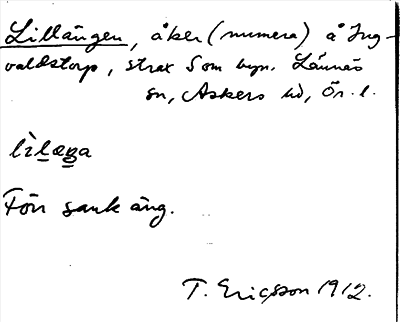 Lillängen, åker (numera) å Ing-
valdstorp, strax S om byn. Lännäs
sn, Askers hd, Ör. l.
lìlæŋa
Förr sank äng.
T. Ericsson 1912.